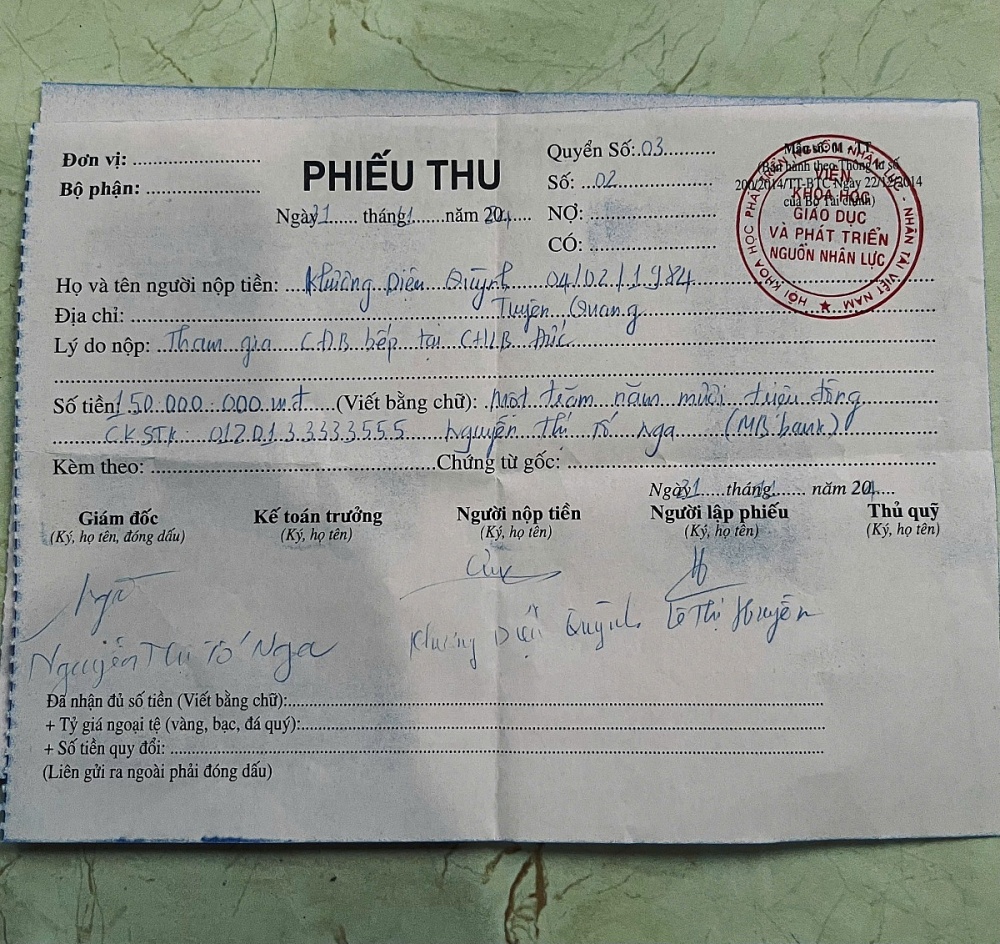 Đơn vị: ....................
Bộ phận: ..................
PHIẾU THU
Ngày 31 ..... tháng ...... năm 20
Quyển Số: 03
Số: 02
NỢ: ....................
CÓ: ....................
Mẫu số 01 - TT
(Ban hành theo Thông tư số
200/2014/TT-BTC Ngày 22/12/2014
của Bộ Tài chính)
HỘI KHOA HỌC PHÁT TRIỂN NGUỒN NHÂN LỰC - NHÂN TÀI VIỆT NAM
VIỆN
KHOA HỌC
GIÁO DỤC
VÀ PHÁT TRIỂN
NGUỒN NHÂN LỰC
Họ và tên người nộp tiền: Khương Diệu Quỳnh 04/02/1984
Địa chỉ: Tuyên Quang
Lý do nộp: Tham gia CĐB bếp tại CHLB Đức
Số tiền: 150.000.000 vnđ (Viết bằng chữ): Một trăm năm mươi triệu đồng
CK.STK: 01201.3.3333555 Nguyễn Thị Tố Nga (MB bank)
Kèm theo: .................... Chứng từ gốc: ....................
Ngày 31 ..... tháng ...... năm 20
Giám đốc
(Ký, họ tên, đóng dấu)
Nguyễn Thị Tố Nga
Kế toán trưởng
(Ký, họ tên)
Người nộp tiền
(Ký, họ tên)
Khương Diệu Quỳnh
Người lập phiếu
(Ký, họ tên)
Lê Thị Huyền
Thủ quỹ
(Ký, họ tên)
Đã nhận đủ số tiền (Viết bằng chữ):....................
+ Tỷ giá ngoại tệ (vàng, bạc, đá quý):....................
+ Số tiền quy đổi: ....................
(Liên gửi ra ngoài phải đóng dấu)